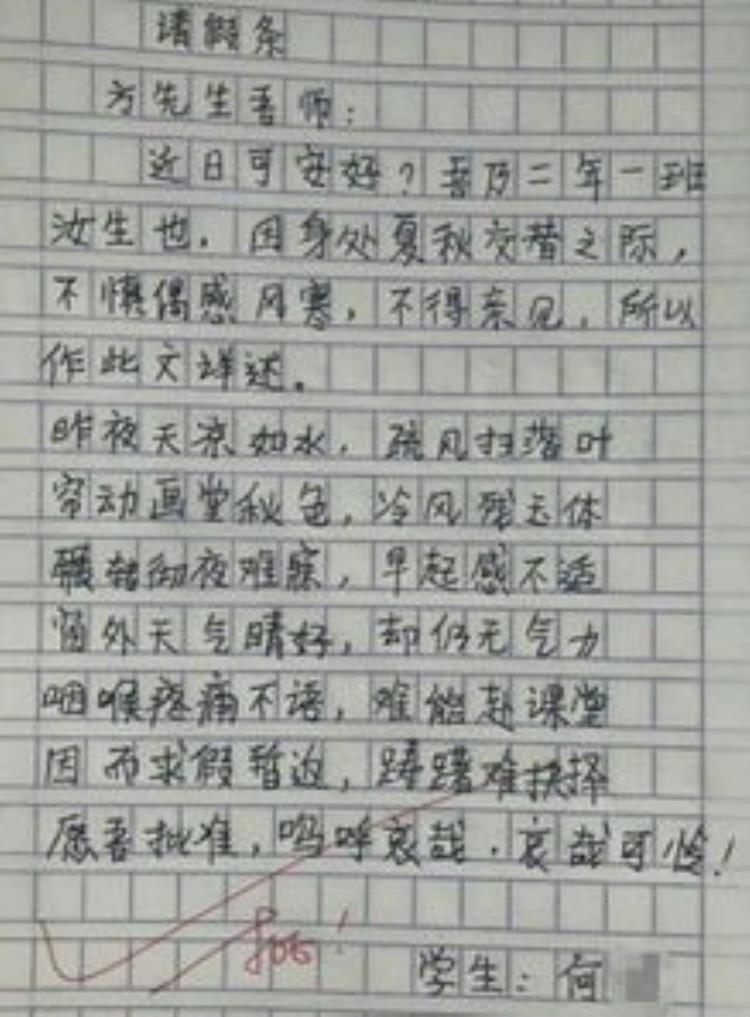 请假条
方先生吾师：
近日可安好？吾乃二年一班
汝生也．因身处夏秋交替之际，
不慎偶感风寒，不得亲见，所以
作此文详述。
昨夜天凉如水，疏风扫落叶
帘动画堂秋色，冷风残玉体
辗转彻夜难寐，早起感不适
窗外天气晴好，却仍无气力
咽喉疼痛不语，难能赴课堂
因而求假暂返，踌躇难抉择
愿吾批准，呜呼哀哉．哀哉可怜！
学生：何